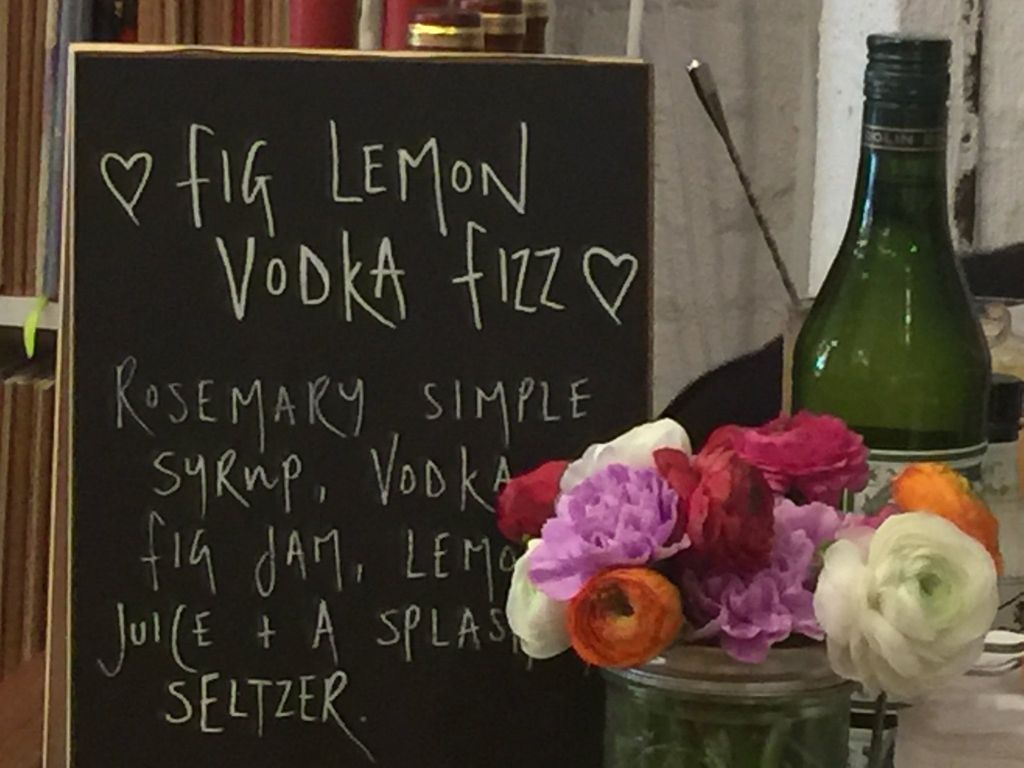 ♡ FIG LEMON
VODKA FIZZ ♡
ROSEMARY SIMPLE
SYRUP, VODKA
FIG JAM, LEMO
JUICE + A SPLAS
SELTZER.
OLIN